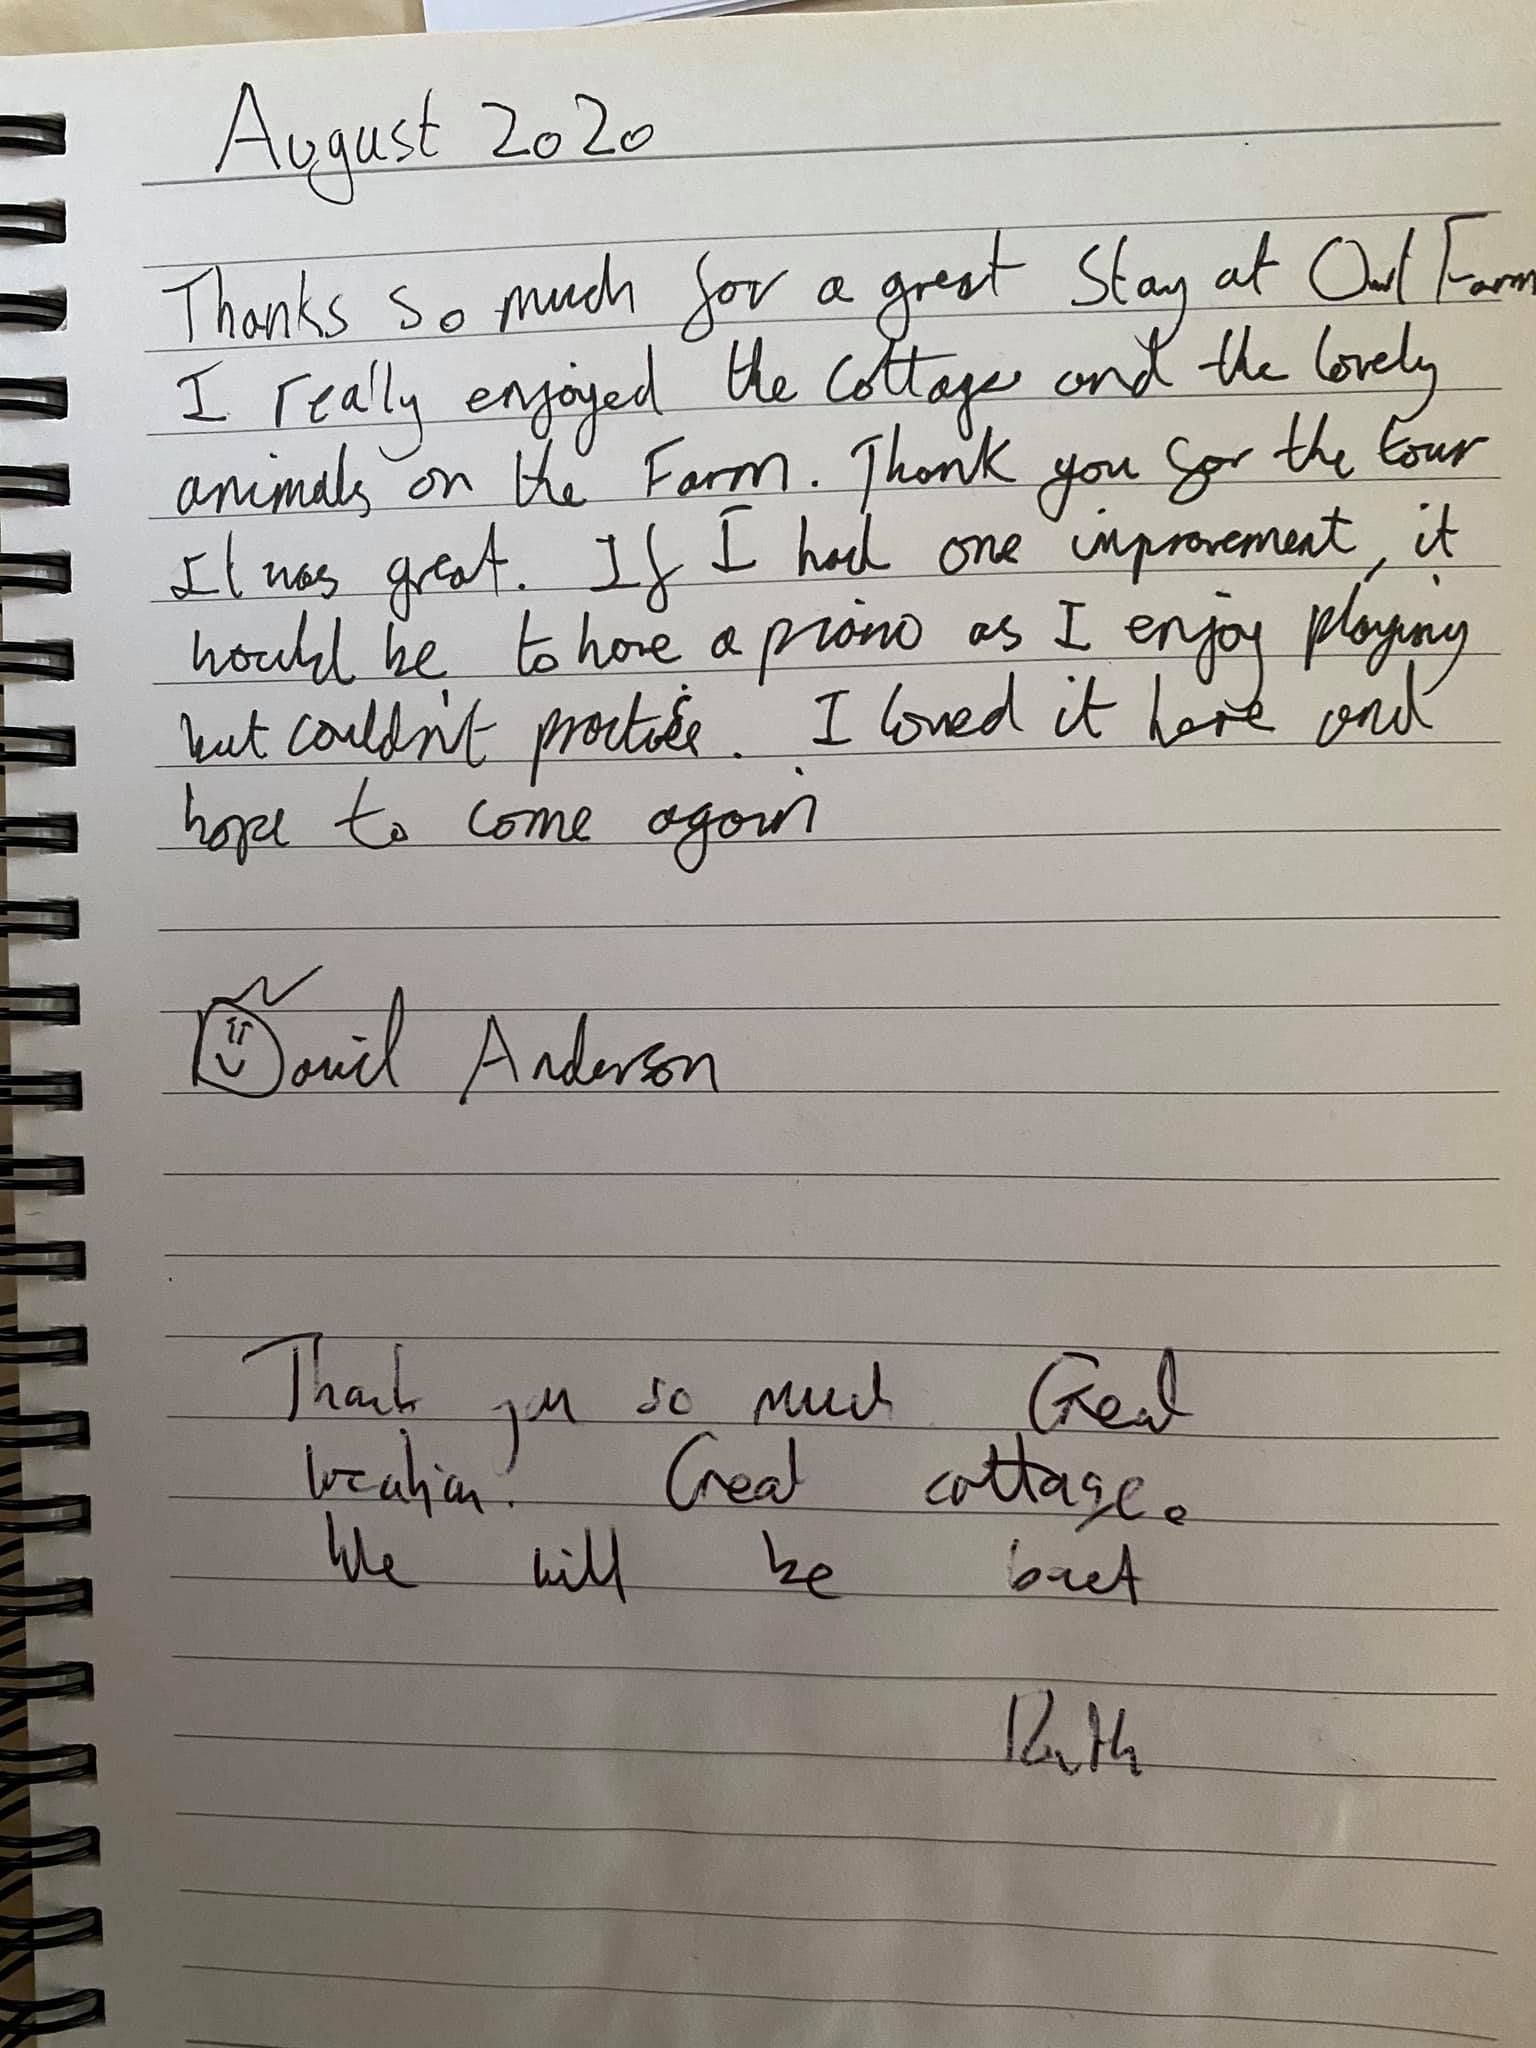 August 2020
Thanks so much for a great stay at Owl Farm
I really enjoyed the cottage and the lovely
animals on the Farm. Thank you for the tour
It was great. If I had one improvement, it
would be to have a piano as I enjoy playing
but couldn't practise. I loved it here and
hope to come again
Daniel Anderson
Thank you so much Great
location. Great cottage.
We will be back
Ruth